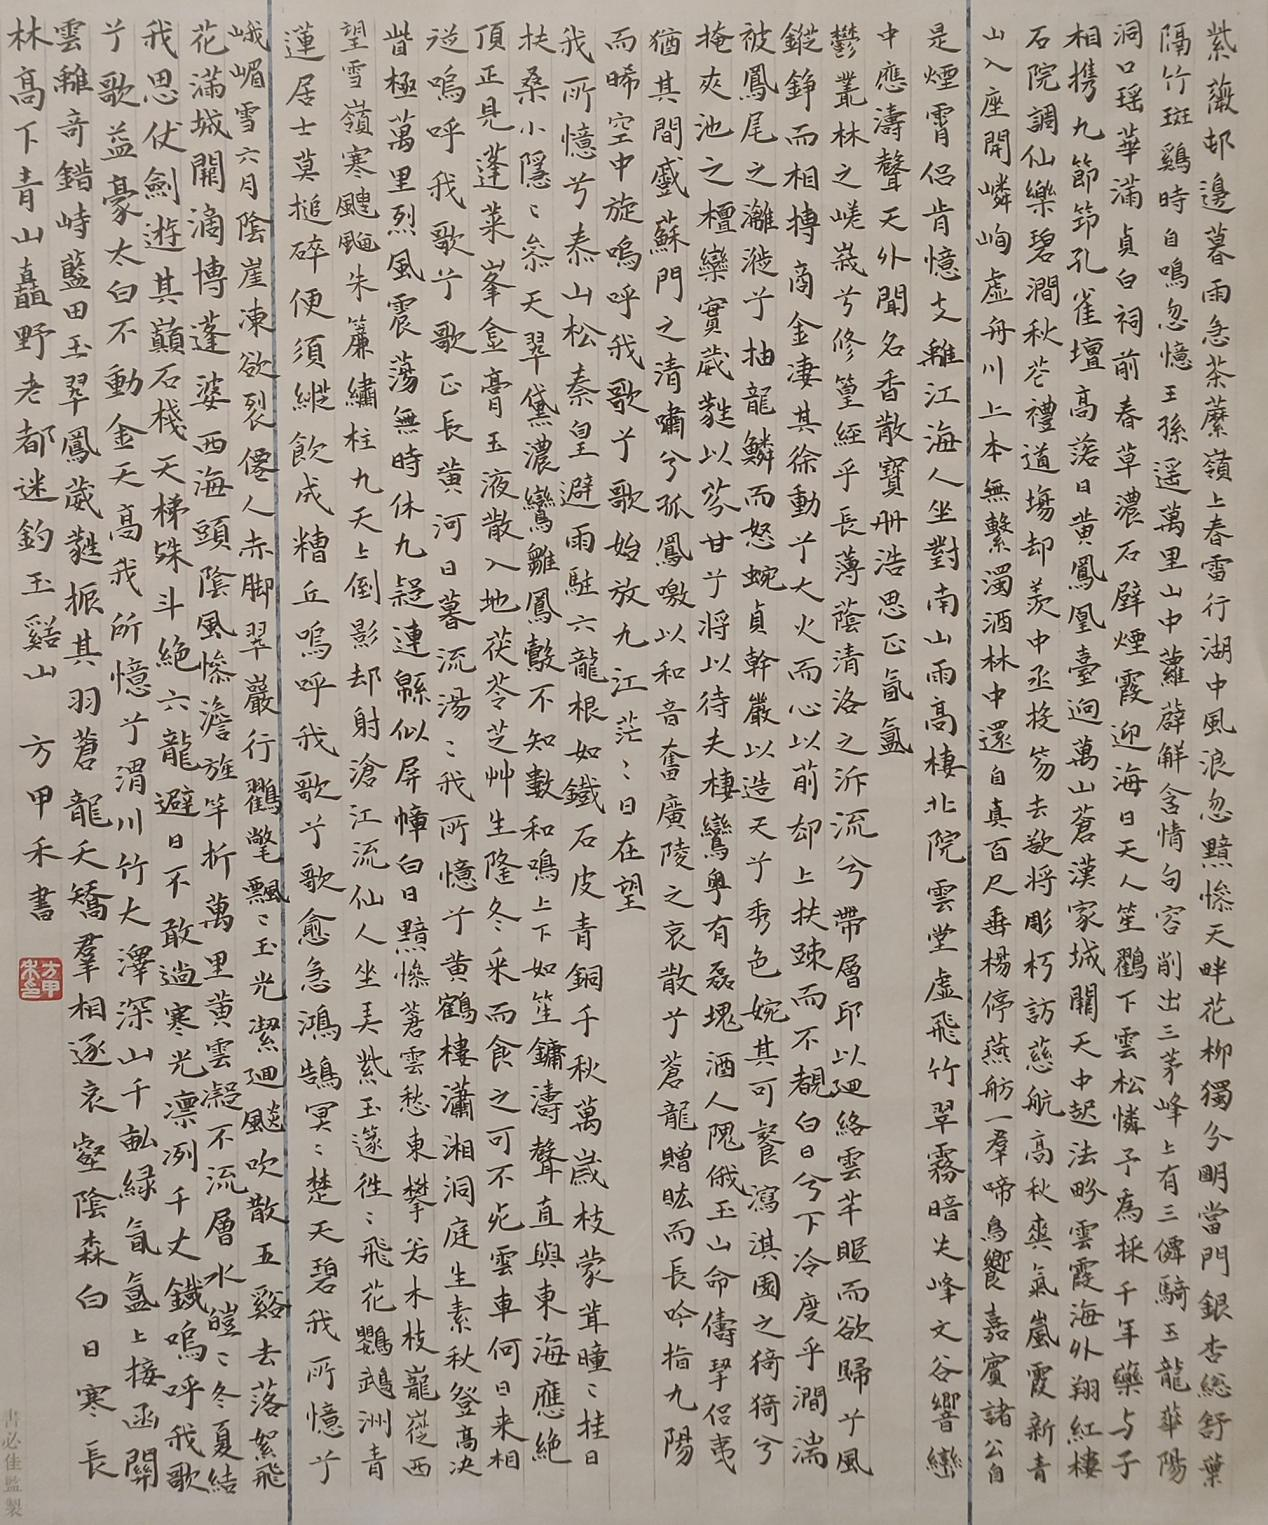 紫薇邨邊暮雨急荼蘼嶺上春雷行湖中風浪忽黯慘天畔花柳獨分明當門銀杏総舒葉
隔竹斑鷄時自鳴忽憶王孫遥萬里山中蘿薜解含情句容削出三茅峰上有三僊騎玉龍華陽
洞口瑶華滿貞白祠前春草濃石壁煙霞迎海日天人笙鶴下雲松憐予為採千年藥与子
相携九節筇孔雀壇高落日黄鳳凰臺迥萬山蒼漢家城闕天中起法畛雲霞海外翔紅棲
石院調仙樂碧澗秋花禮道場却羨中丞投笏去欲将彫朽訪慈航高秋爽氣嵐霞新青
山入座開嶙峋虚舟川上本無繫濁酒林中還自真百尺垂楊停燕舫一羣啼鳥饗嘉賓諸公自
是煙霄侣肯憶支離江海人坐對南山雨高棲北院雲堂虚飛竹翠霧暗失峰文谷響巒
中應濤聲天外聞名香散寶册浩思正氤氲
鬱叢林之嵯峩兮修篁經乎長薄蔭清洛之泝流兮帶層邱以廻絡雲芊眠而欲歸兮風
鏦錚而相摶商金凄其徐動兮大火而心以前却上扶踈而不覩白日兮下冷度乎澗湍
被鳳尾之灕漇兮抽龍鱗而怒蜿貞幹嚴以造天兮秀色婉其可餐瀉淇園之猗猗兮
掩夾池之檀欒實葳蕤以芬甘兮將以待夫棲鸞粤有磊塊酒人隗俄玉山命儔挈侣夷
猶其間蹙蘇門之清嘯兮孤鳳噭以和音奮廣陵之哀散兮蒼龍贈肱而長吟指九陽
而晞空中旋嗚呼我歌兮歌始放九江茫〻日在望
我所憶兮泰山松秦皇避雨駐六龍根如鐵石皮青銅千秋萬歲枝蒙茸曈〻挂日
扶桑小隱〻叅天翠黛濃鸞雛鳳鷇不知數和鳴上下如笙鏞濤聲直與東海應絶
頂正見蓬萊峯金膏玉液散入地茯苓芝艸生隆冬采而食之可不死雲車何日来相
從嗚呼我歌兮歌正長黄河日暮流湯〻我所憶兮黄鶴樓瀟湘洞庭生素秋登高决
眥極萬里烈風震蕩無時休九疑連緜似屏幛白日黯慘蒼雲愁東攀若木枝巃嵸西
望雪嶺寒颼飀朱簾繡柱九天上倒影却射滄江流仙人坐弄紫玉篴徃〻飛花鸚鵡洲青
蓮居士莫搥碎便須縱飲成糟丘嗚呼我歌兮歌愈急鴻鵠冥〻楚天碧我所憶兮
峨嵋雪六月陰崖凍欲裂僊人赤脚翠巖行鶴氅飄〻玉光潔廻颷吹散五谿去落絮飛
花滿城闕滴博蓬婆西海頭陰風慘澹旌竿折萬里黄雲凝不流層氷皚〻冬夏結
我思伏劍遊其巔石棧天梯殊斗絶六龍避日不敢過寒光凛冽千丈鐵嗚呼我歌
兮歌益豪太白不動金天高我所憶兮渭川竹大澤深山千畝緑氤氲上接函關
雲離奇錯峙藍田玉翠鳳葳蕤振其羽蒼龍夭矯羣相逐哀壑陰森白日寒長
林高下青山矗野老都迷釣玉谿山 方甲禾書
方甲禾印
書必佳監製